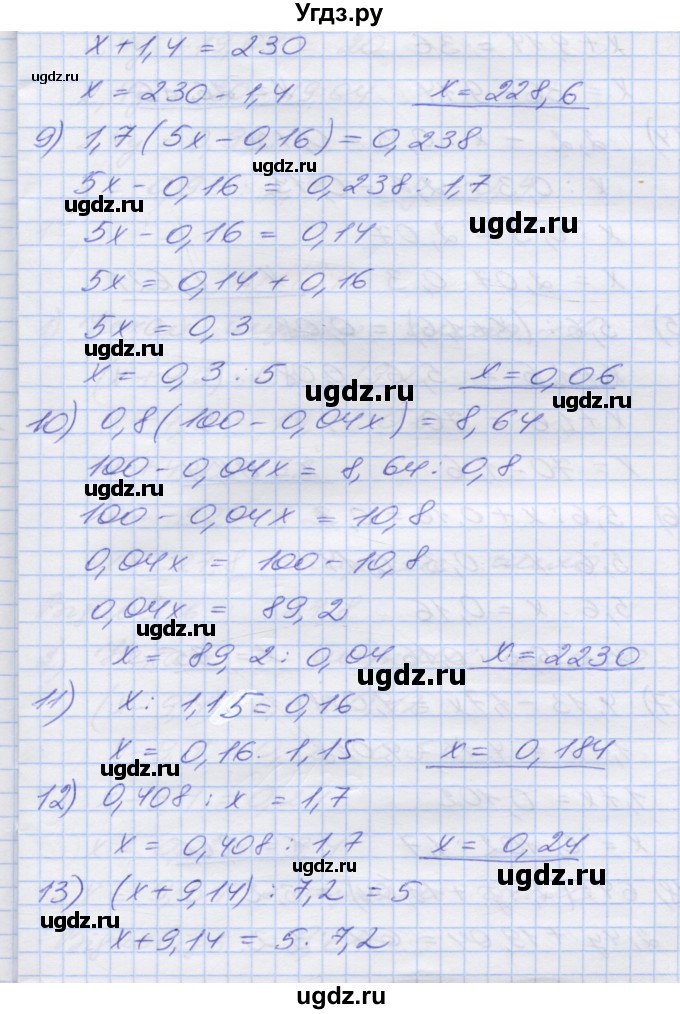 Угдз.ру
x + 1,4 = 230
ugdz.ru
x = 230 - 1,4   x = 228,6
9) 1,7(5x - 0,16) = 0,238
ugdz.ru
5x - 0,16 = 0,238 : 1,7
ugdz.ru
ugdz.ru
5x - 0,16 = 0,14
5x = 0,14 + 0,16
5x = 0,3
ugdz.ru
x = 0,3 : 5   x = 0,06
ugdz.ru
ugdz.ru
10) 0,8(100 - 0,04x) = 8,64
100 - 0,04x = 8,64 : 0,8
ugdz.ru
100 - 0,04x = 10,8
0,04x = 100 - 10,8
0,04x = 89,2
ugdz.ru
x = 89,2 : 0,04   x = 2230
ugdz.ru
11) x : 1,15 = 0,16
x = 0,16 · 1,15   x = 0,184
ugdz.ru
12) 0,408 : x = 1,7
x = 0,408 : 1,7   x = 0,24
ugdz.ru
ugdz.ru
13) (x + 9,14) : 7,2 = 5
ugdz.ru
x + 9,14 = 5 · 7,2
ugdz.ru